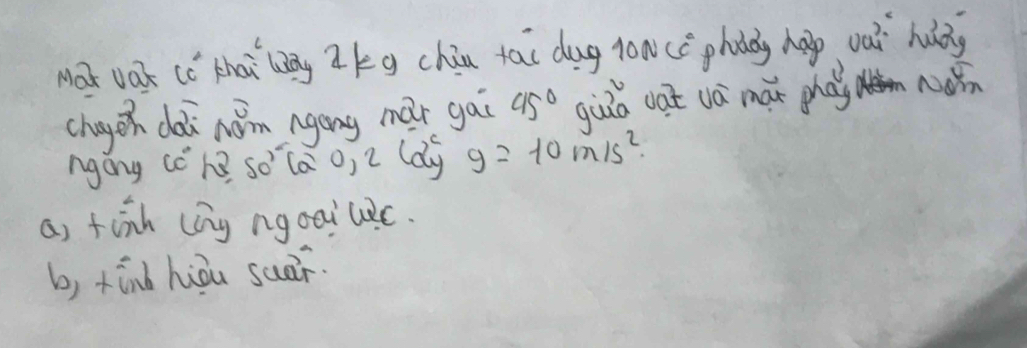 Một vật có khối lượng 2kg chịu tác dụng 10N có phương hợp với hướng
chuyển dời nằm ngang một góc 45° giữa vật và mặt phẳng nằm
ngang có hệ số là 0,2 lấy g = 10 m/s².
a) tính công ngoại lực.
b) tính hiệu suất.